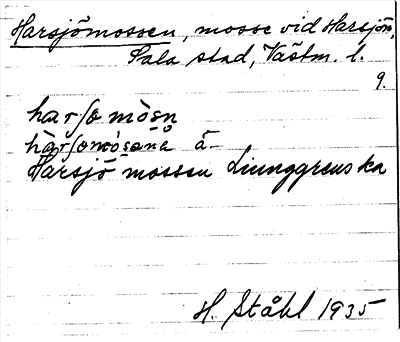 Harsjömossen, mosse vid Harsjön,
Sala stad, Västm. l.
9.
harsomòsn
hàrsomòsana å-
Harsjö mossen Liunggrens ka
H. Ståhl 1935